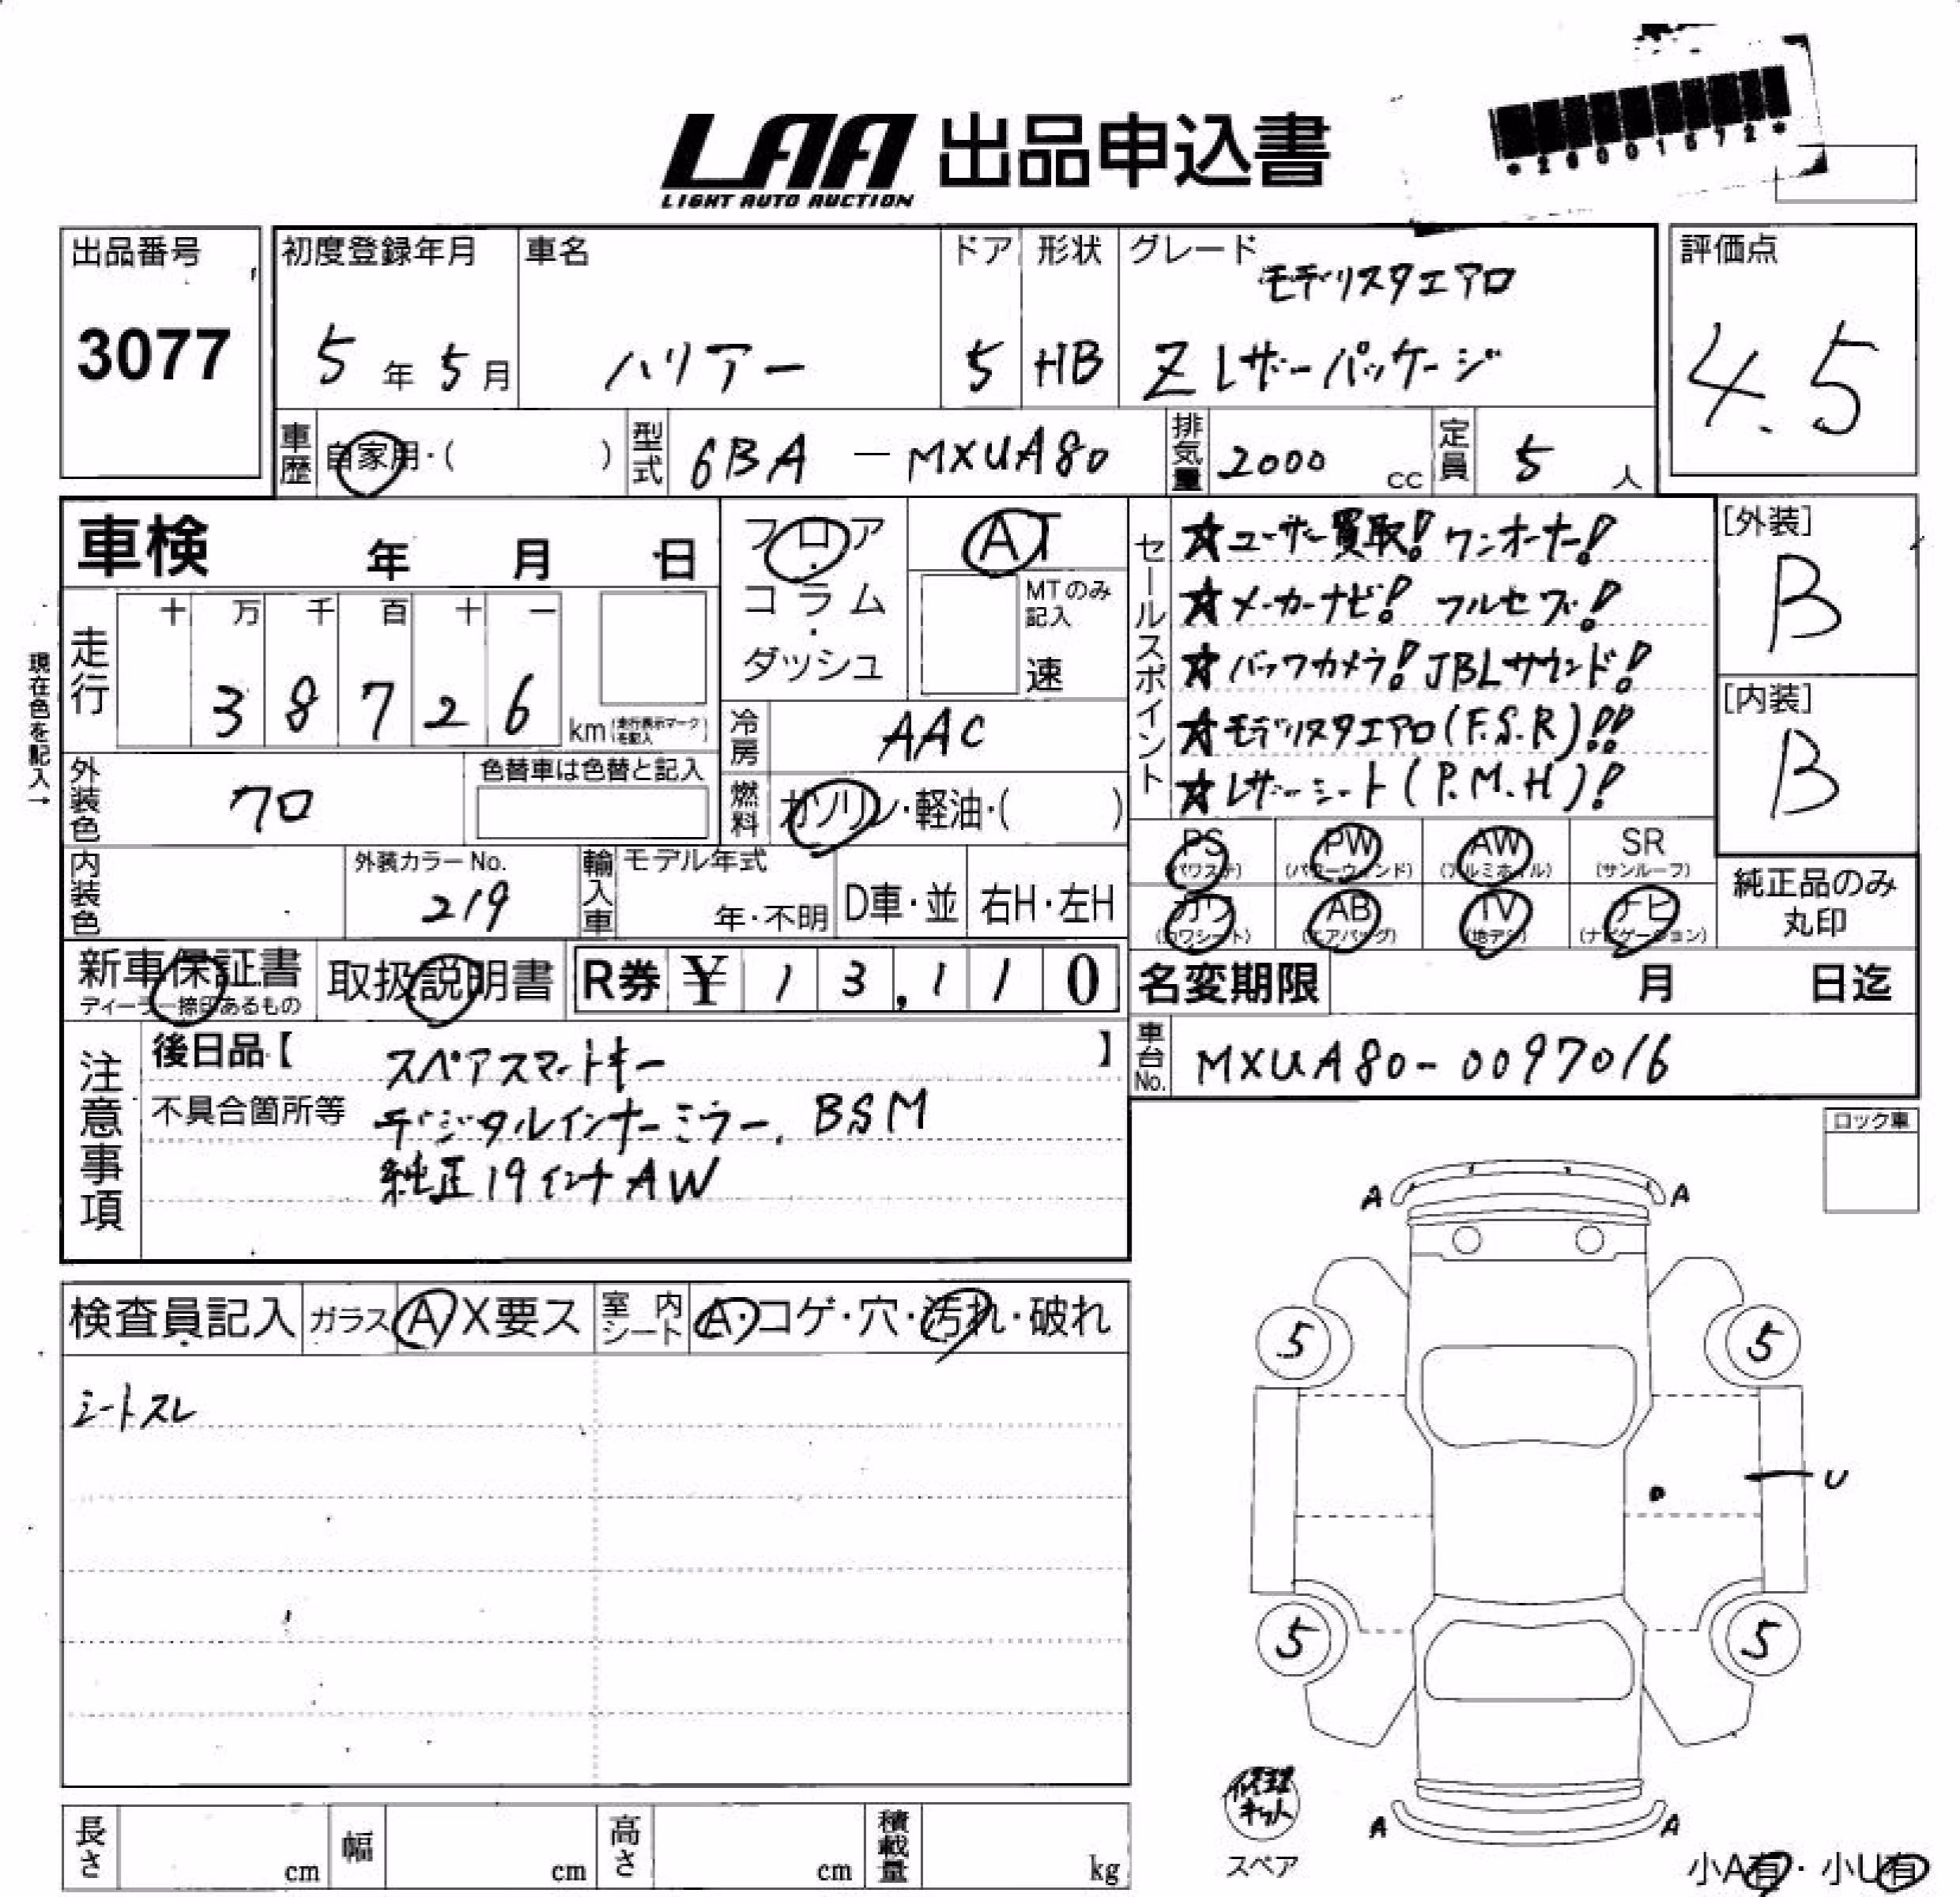 LAA 出品申込書
LIGHT AUTO AUCTION
*26001672*
出品番号
3077
初度登録年月
5年5月
車名
ハリアー
ドア
5
形状
HB
グレード
モデリスタエアロ
Z レザーパッケージ
評価点
4.5
車歴 自家用・( )
型式 6BA-MXUA80
排気量 2000 cc
定員 5 人
車検 年 月 日
フロア・コラム・ダッシュ
AT
MTのみ記入
速
セールスポイント
☆ユーザー買取! ワンオーナー!
☆メーカーナビ! フルセグ!
☆バックカメラ! JBLサウンド!
☆モデリスタエアロ(F.S.R)!!
☆レザーシート(P.M.H)!
[外装]
B
[内装]
B
現在色を記入→
走行
十 万 千 百 十 一
3 8 7 2 6
km (走行表示マークを記入)
冷房 AAC
外装色 クロ
色替車は色替と記入
燃料 ガソリン・軽油・( )
PS (パワステ)
PW (パワーウィンド)
AW (アルミホイル)
SR (サンルーフ)
カワ (カワシート)
AB (エアバッグ)
TV (地デジ)
ナビ (ナビゲーション)
純正品のみ丸印
内装色
外装カラーNo.
219
輸入車
モデル年式
年・不明
D車・並
右H・左H
新車保証書
ディーラー捺印あるもの
取扱説明書
R券 ¥13,110
名変期限 月 日迄
車台No. MXUA80-0097016
注意事項
後日品【 スペアスマートキー 】
不具合箇所等 デジタルインナーミラー、BSM
純正19インチAW
ロック車
A A
検査員記入
ガラス A X要ス
室内シート A・コゲ・穴・汚れ・破れ
シートスレ
5 5
U
5 5
修理キット
スペア
A A
長さ cm
幅 cm
高さ cm
積載量 kg
小A有・小U有